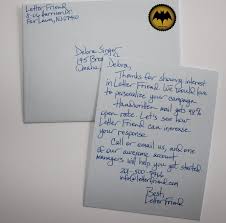 Letter Friend
8-06 Harrison Dr.
Fair Lawn, NJ 07410
Debra Singer
195 Broad St
Omaha,
Debra,
Thanks for showing interest
in Letter Friend. We would love
to personalize your campaign.
Handwritten mail gets 98%
open rate. Let's see how
Letter Friend can increase
your response.
Call or email us, and one
of our awesome account
managers will help you get started.
info@letterfriend.com
Best,
Letter Friend